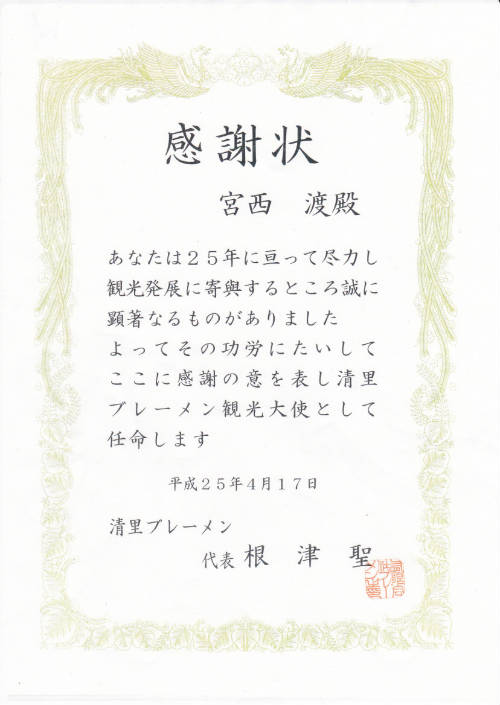 感謝状
宮西 渡殿
あなたは２５年に亘って尽力し
観光発展に寄與するところ誠に
顕著なるものがありました
よってその功労にたいして
ここに感謝の意を表し清里
ブレーメン観光大使として
任命します
平成２５年４月１７日
清里ブレーメン
代表 根 津 聖